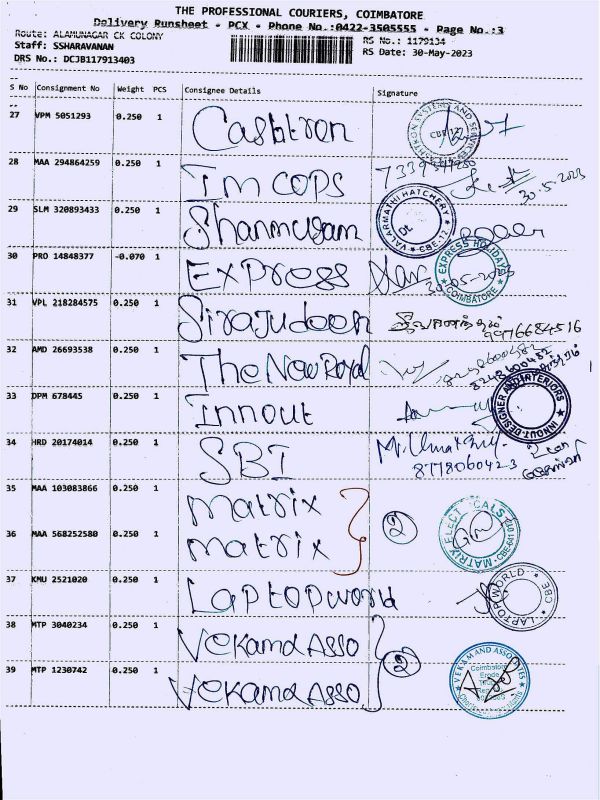 THE PROFESSIONAL COURIERS, COIMBATORE
Delivery Runsheet - PCX - Phone No.:0422-3505555 - Page No.:3
Route: ALAMUNAGAR CK COLONY
Staff: SSHARAVANAN
DRS No.: DCJB117913403
RS No.: 1179134
RS Date: 30-May-2023
S No Consignment No Weight PCS Consignee Details Signature
27 VPM 5051293 0.250 1 Cashtron CBE-12
28 MAA 294864259 0.250 1 IM COPS
30.5.2023
29 SLM 320893433 0.250 1 Shanmugam VALARMATHI HATCHERY CBE-12
30 PRO 14848377 -0.070 1 Express EXPRESS HOLIDAYS COIMBATORE
31 VPL 218284575 0.250 1 Sirajudeen 9976684516
32 AMD 26693538 0.250 1 The New Royal
33 DPM 678445 0.250 1 Innout INNOUT-DESIGNER AND INTERIORS
34 HRD 20174014 0.250 1 SBI
8778060423
35 MAA 103083866 0.250 1 matrix 2 MATRIX ELECTRICALS
36 MAA 568252580 0.250 1 matrix
37 KMU 2521020 0.250 1 Laptopworld LAPTOP WORLD CBE
38 MTP 3040234 0.250 1 Vekamd Asso 2
39 MTP 1230742 0.250 1 Vekamd Asso. VEKAM AND ASSOCIATES
Coimbatore
Erode